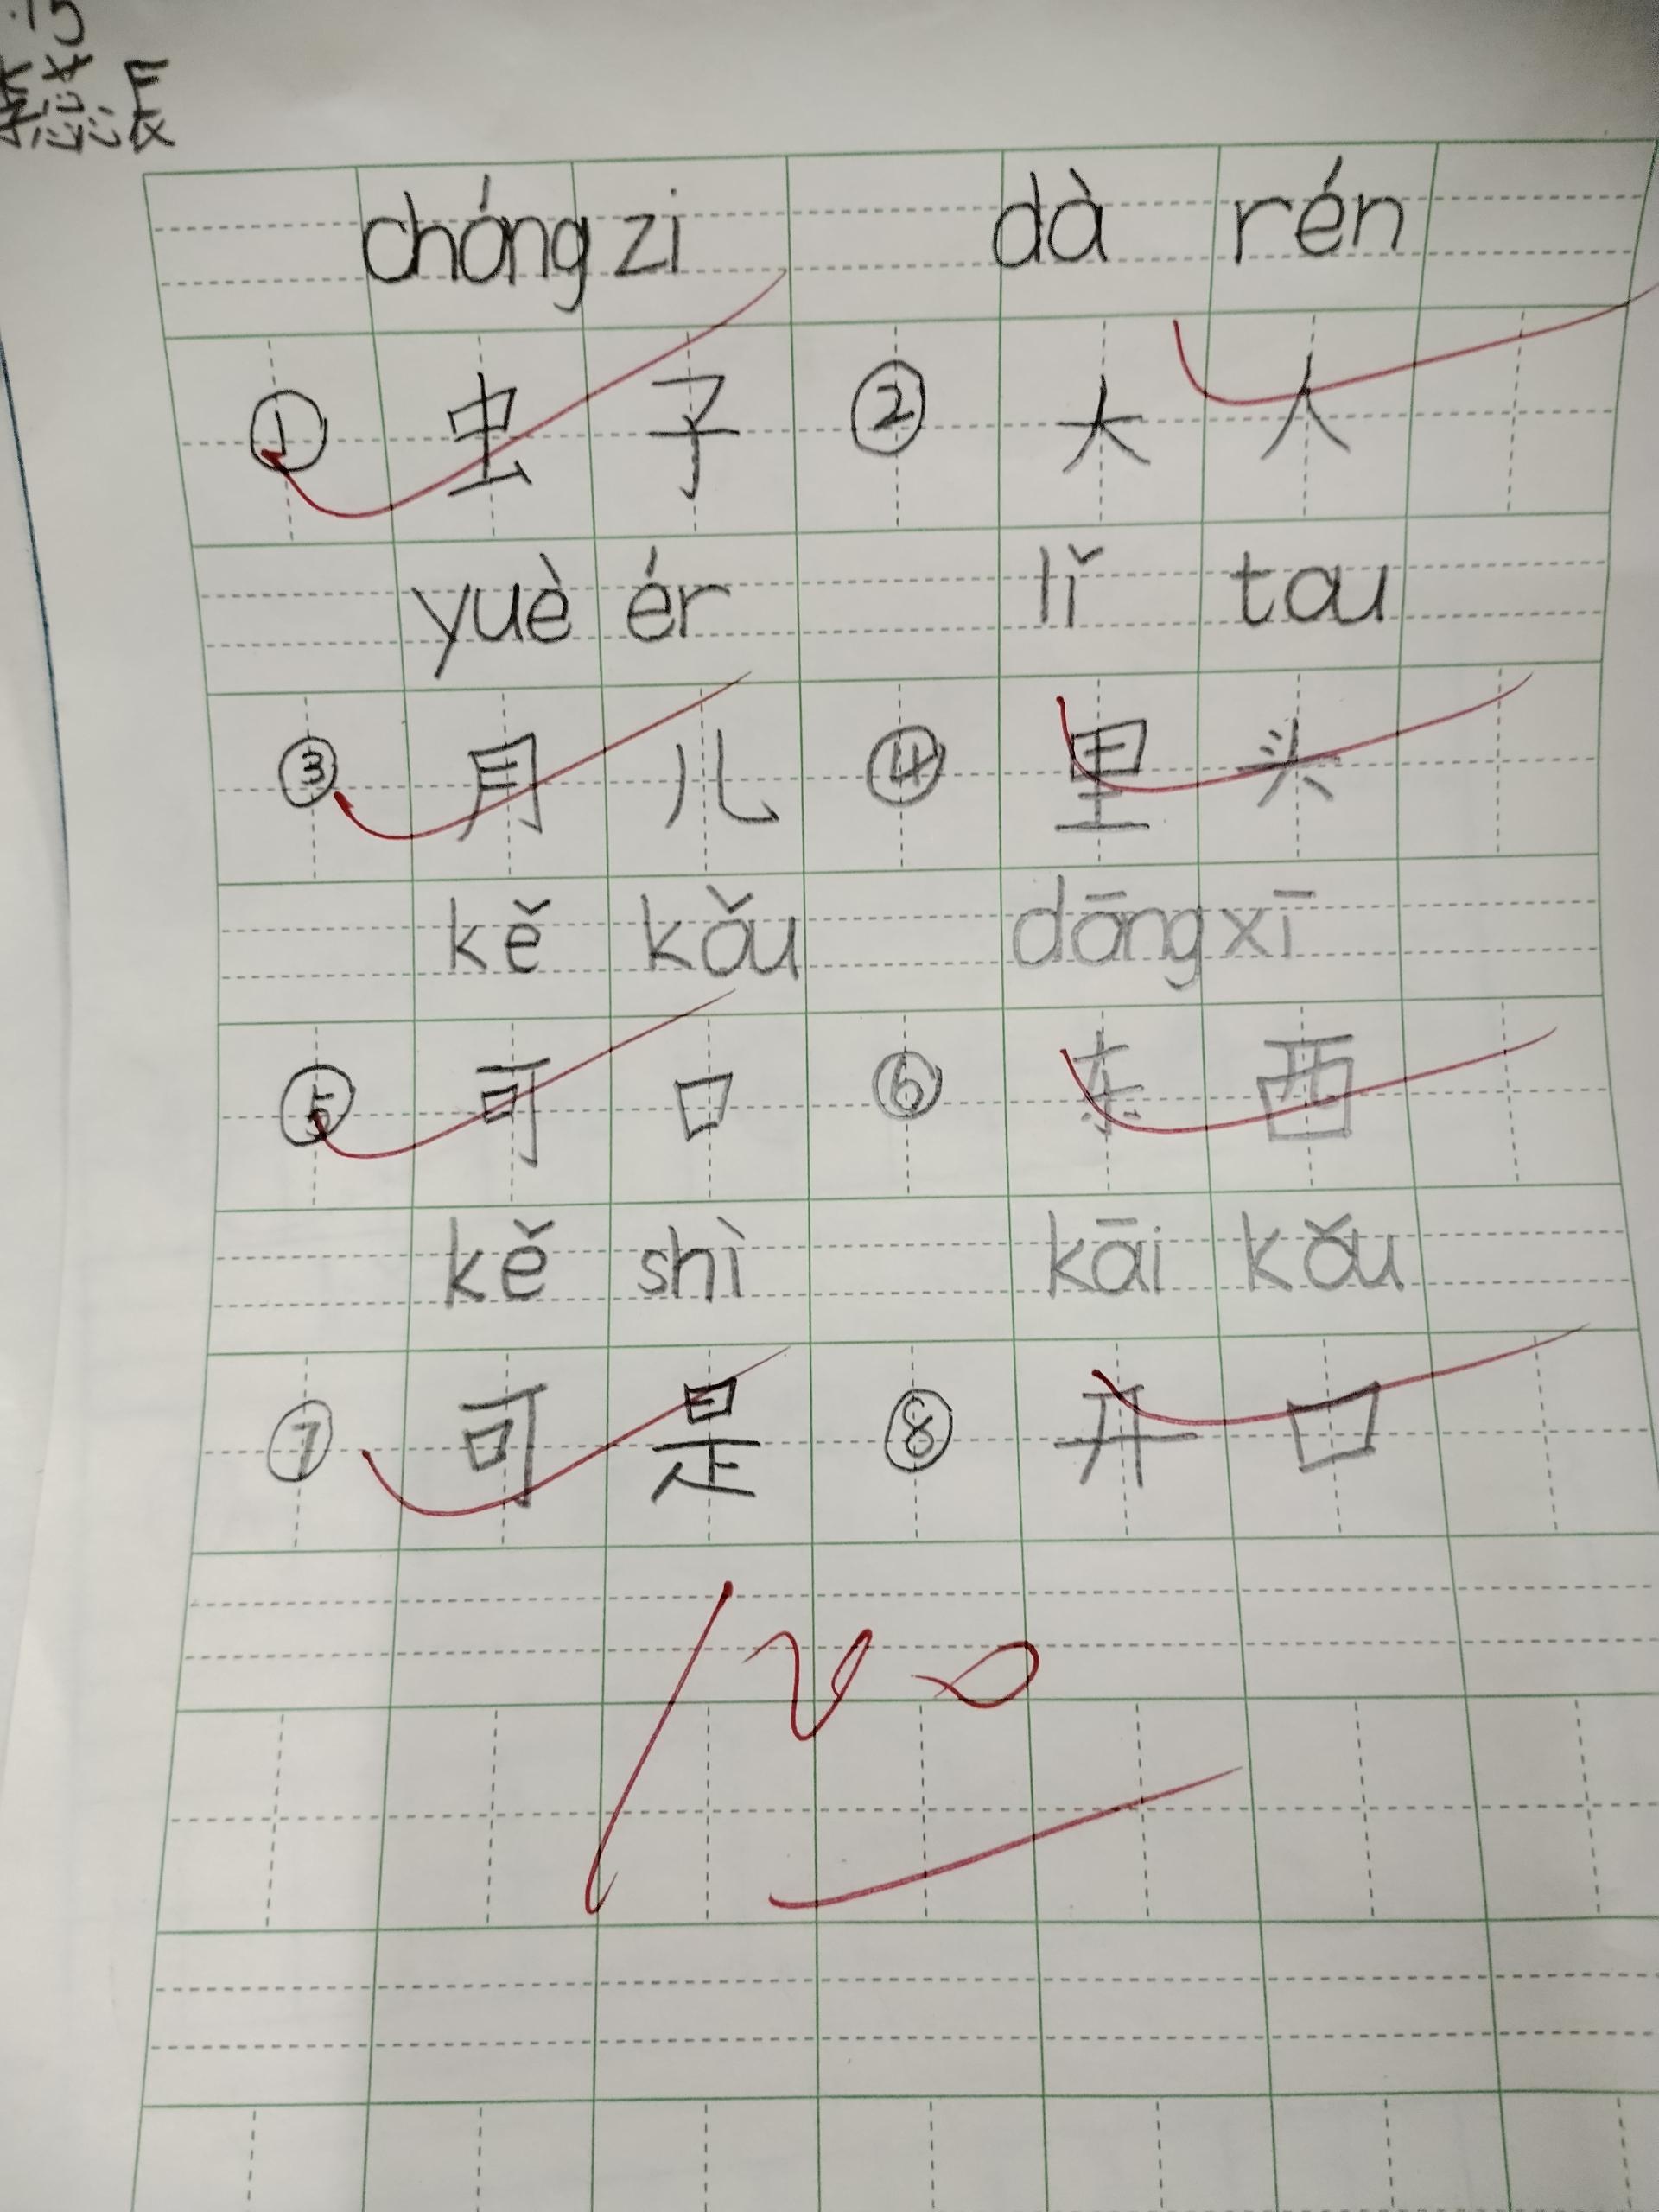 15
chóng zi dà rén
① 虫 子 ② 大 人
yuè ér lǐ tou
③ 月 儿 ④ 里 头
kě kǒu dōng xī
⑤ 可 口 ⑥ 东 西
kě shì kāi kǒu
⑦ 可 是 ⑧ 开 口
100